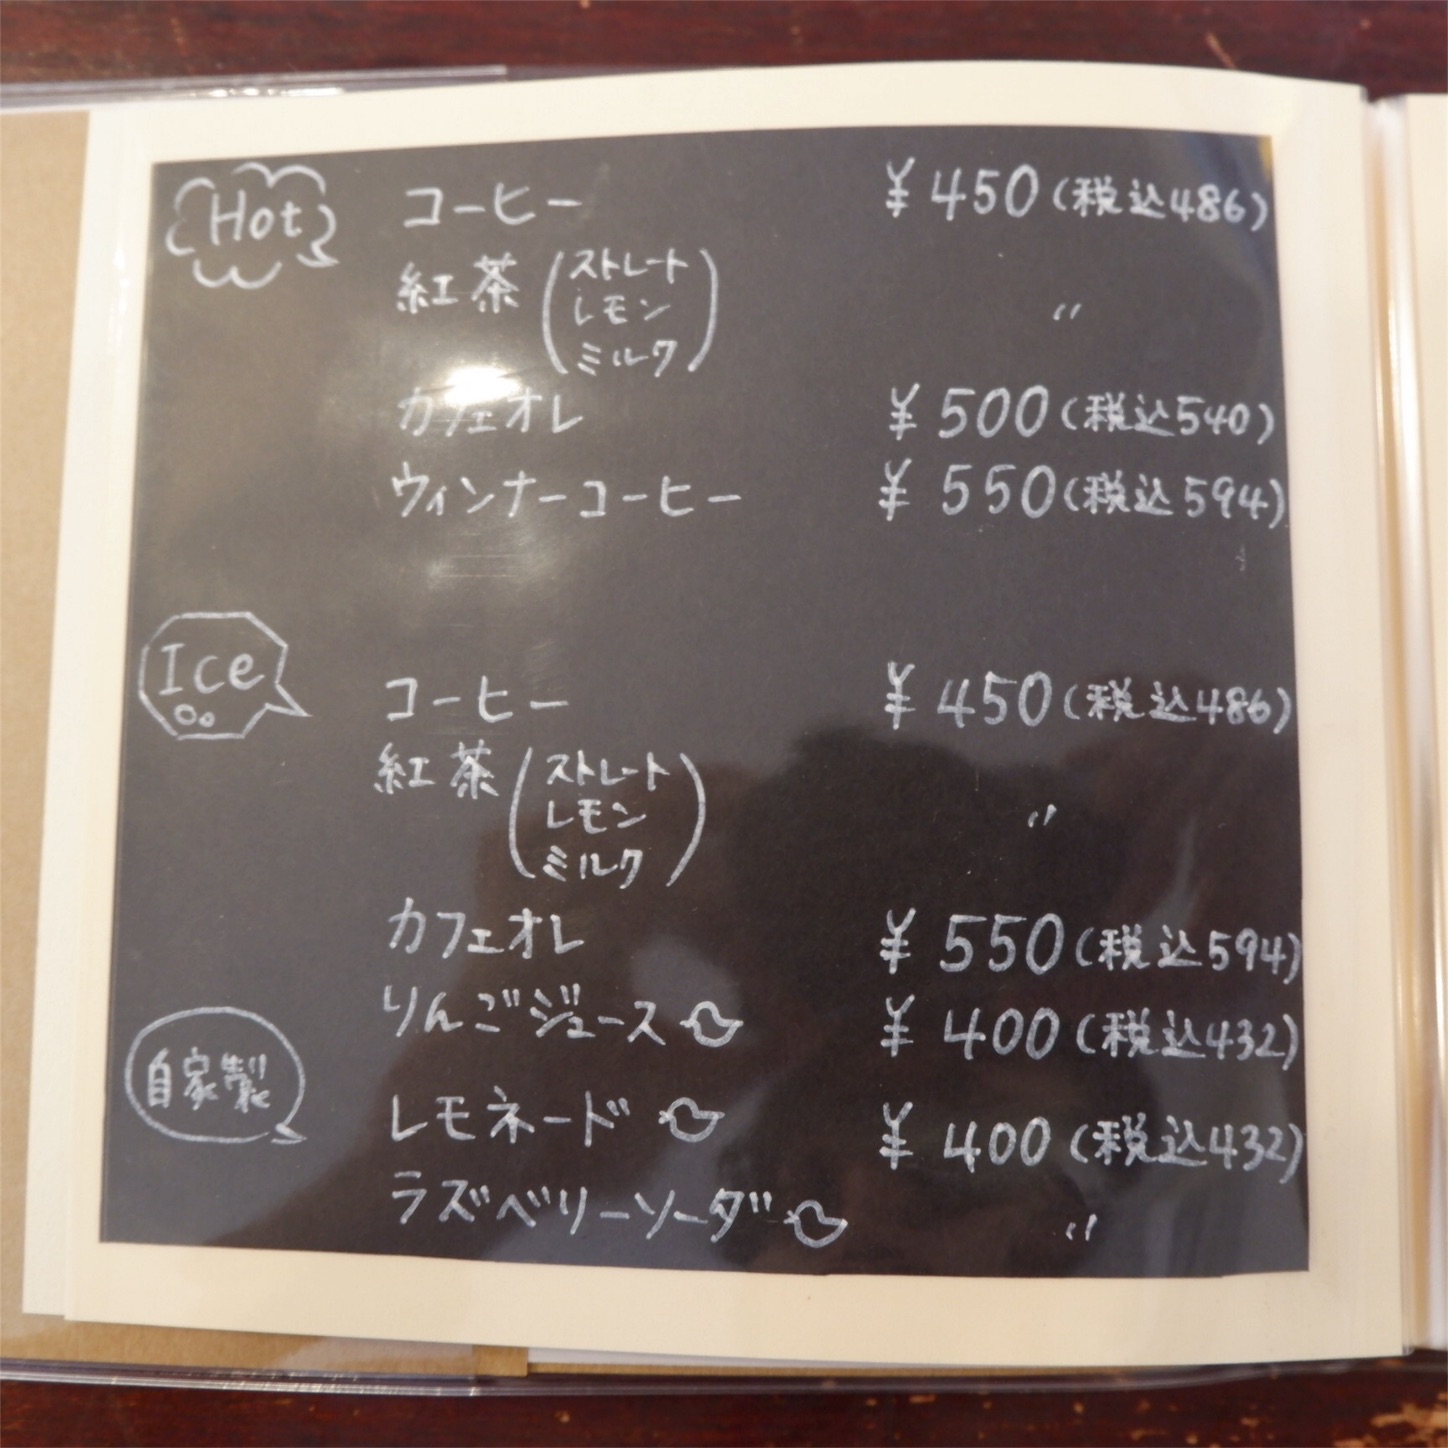 Hot
コーヒー ¥450(税込486)
紅茶(ストレート
レモン 〃
ミルク)
カフェオレ ¥500(税込540)
ウィンナーコーヒー ¥550(税込594)
Ice
コーヒー ¥450(税込486)
紅茶(ストレート
レモン 〃
ミルク)
カフェオレ ¥550(税込594)
りんごジュース ¥400(税込432)
自家製
レモネード ¥400(税込432)
ラズベリーソーダ 〃